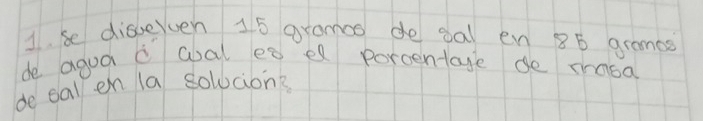 1. Se disuelven 15 gramos de sal en 85 gramos
de agua ¿ cual es el porcentaje de masa
de sal en la solucion?